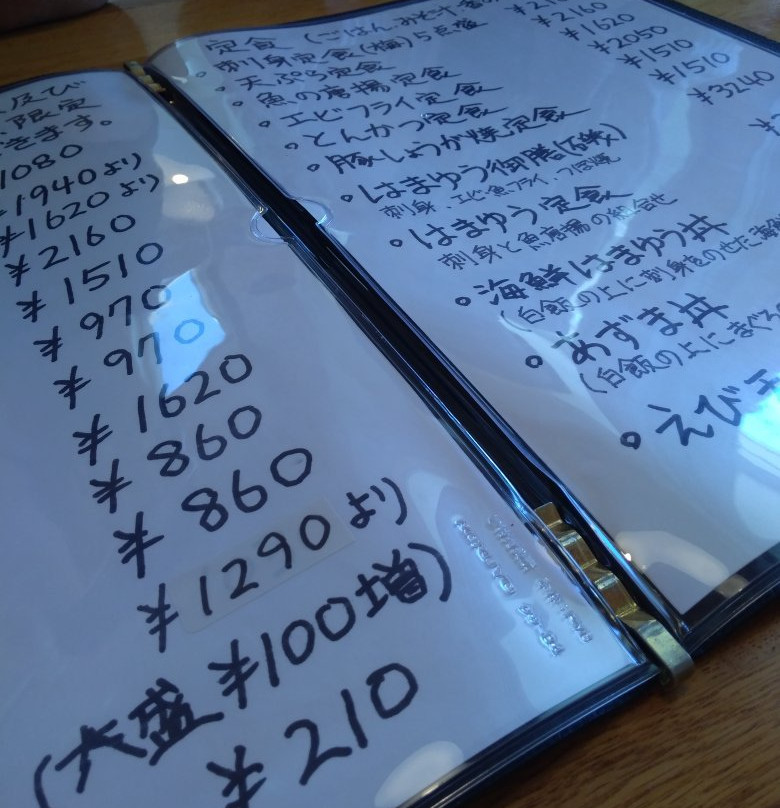 及び
限定
きます。
1080
1940より
¥1620より
¥2160
¥1510
¥970
¥970
¥1620
¥860
¥860
¥1290より
(大盛 ¥100増)
¥210
定食 (ごはん、みそ汁、
・刺身定食(梅)5点盛
・天ぷら定食
・魚の唐揚定食
・エビフライ定食
・とんかつ定食
・豚しょうが焼定食
・はまゆう御膳
刺身、エビ・魚フライ、
・はまゆう定食
刺身と魚唐揚の組合せ
・海鮮はまゆう丼
(白飯の上に刺身をのせた
・あずま丼
(白飯の上にまぐろ
・えび
¥2160
¥1620
¥2050
¥1510
¥1510
¥3240